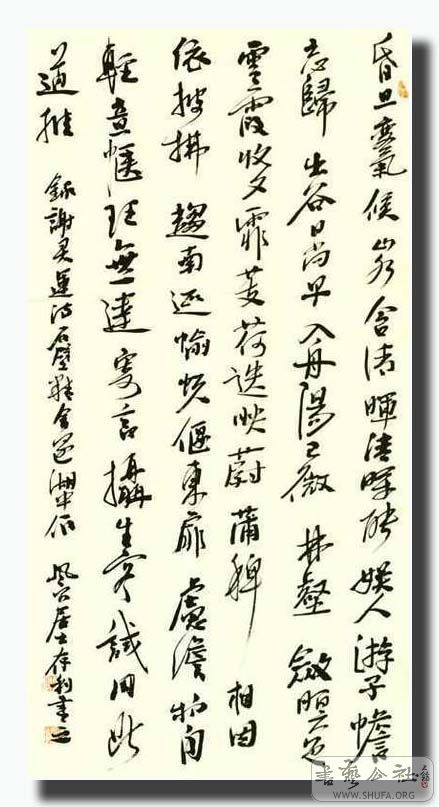 昏旦變氣候山水含清暉清暉能娱人游子憺
忘歸出谷日尚早入舟陽已微林壑斂暝色
雲霞收夕霏芰荷迭映蔚蒲稗相因
依披拂趨南逕愉悦偃東扉慮澹物自
輕意愜理無違寄言攝生客試用此
道推
錄謝灵運诗石壁精舍還湖中作 居士存利書之
書藝公社
WWW.SHUFA.ORG